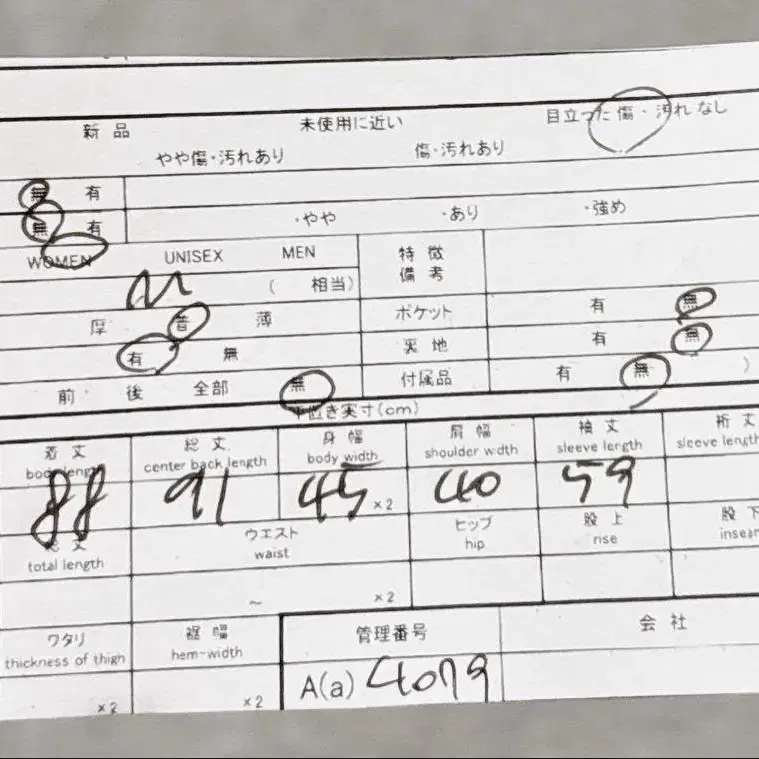 新品 未使用に近い 目立った傷・汚れなし
やや傷・汚れあり 傷・汚れあり
無 有
無 有 ・やや ・あり ・強め
WOMEN UNISEX MEN 特徴
備考
M ( 相当)
厚 普 薄 ポケット 有 無
有 無 裏地 有 無
前 後 全部 無 付属品 有 無 )
平置き実寸(cm)
着丈 総丈 身幅 肩幅 袖丈 裄丈
body length center back length body width shoulder wdth sleeve length sleeve length
88 91 45 ×2 40 59
総丈 ウエスト ヒップ 股上 股下
total length waist hip rise
~ ×2
ワタリ 裾幅 管理番号 会社
thickness of thigh hem-width
×2 ×2 A(a) 4079